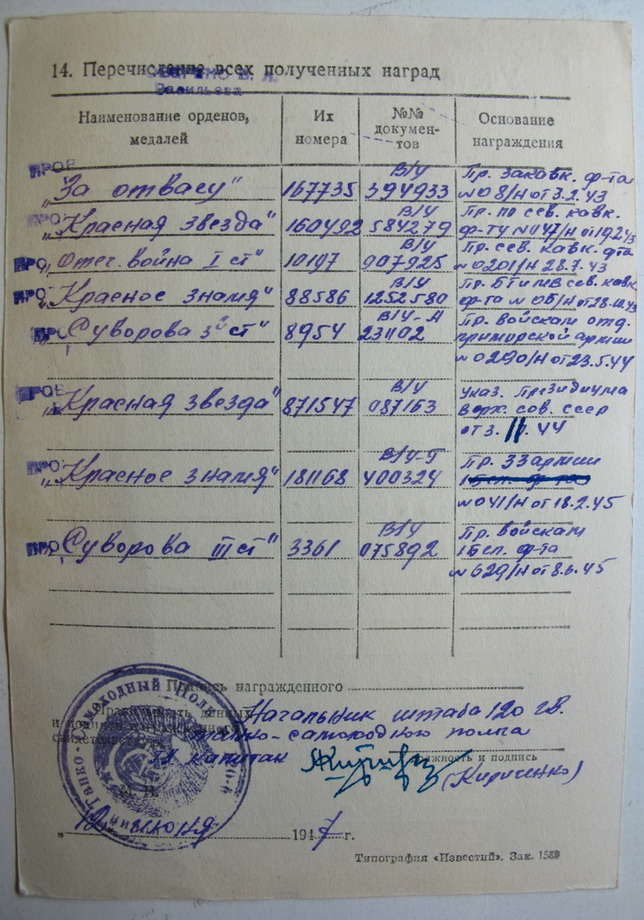 14. Перечисление всех полученных наград
Васильева
Наименование орденов, медалей
Их номера
№№ документов
Основание награждения
ПРОВ
„За отвагу“ 167735 В/У 394933 Пр. Закавк. ф-та
№08/Н от 3.2.43
ПРО „Красная звезда“ 160492 В/У 584279 Пр. по сев. кавк.
ф-ту №047/Н от
ПРО „Отеч. война I ст“ 10197 В/У 907925 Пр. сев. кавк. ф-та
№0201/Н 28.7.43
ПРО „Красное знамя“ 88586 В/У 1252580 Пр. БТиМВ сев. кавк
ф-та №
ПРО „Суворова 3 ст“ 8954 В/У-А 231102 Пр. войскам отд.
приморской армии
№0290/Н от 23.5.44
ПРОВ
„Красная звезда“ 871547 В/У 087163 Указ. Президиума
Верх. сов. ссср
от 3.11.44
ПРО „Красное знамя“ 181168 В/У-Г 400324 Пр. 33 армии
№041/Н от 18.2.45
ПРО „Суворова III ст“ 3361 В/У 075892 Пр. войскам
1 Бел. ф-та
№629/Н от 8.6.45
Подпись награжденного
Начальник штаба 120 гв.
танко-самоходного полка
гв. капитан
Должность и подпись
(Кириченко)
М. П.
„12“ июня 1947 г.
Танко-Самоходный Полк
Типография «Известий». Зак.